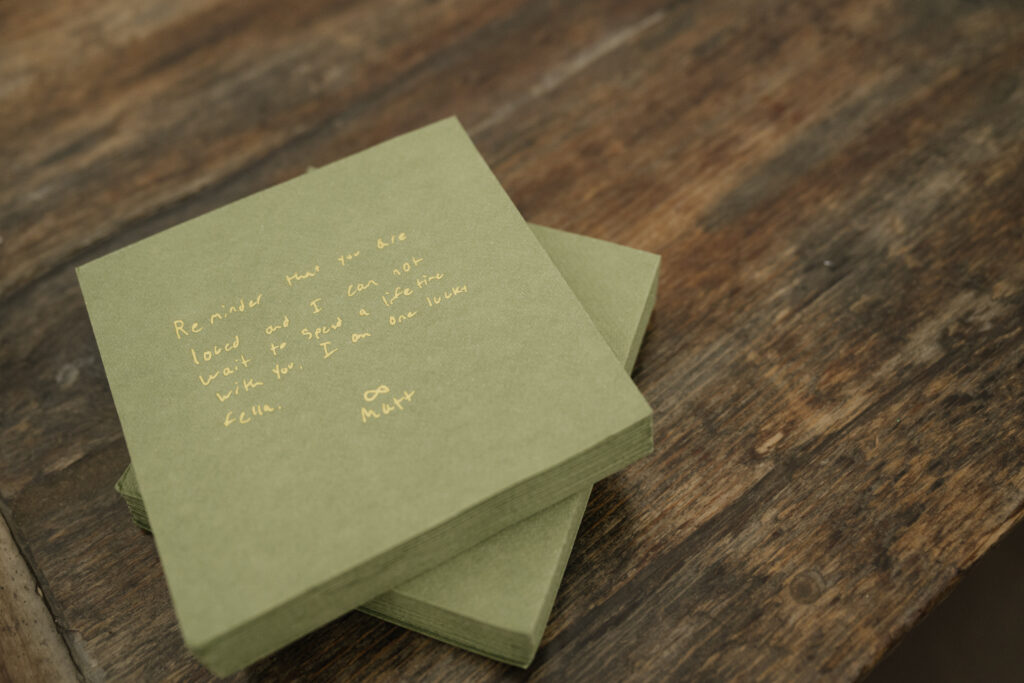 Reminder that you are
loved and I can not
wait to spend a lifetime
with you. I am one lucky
fella.
∞
Matt